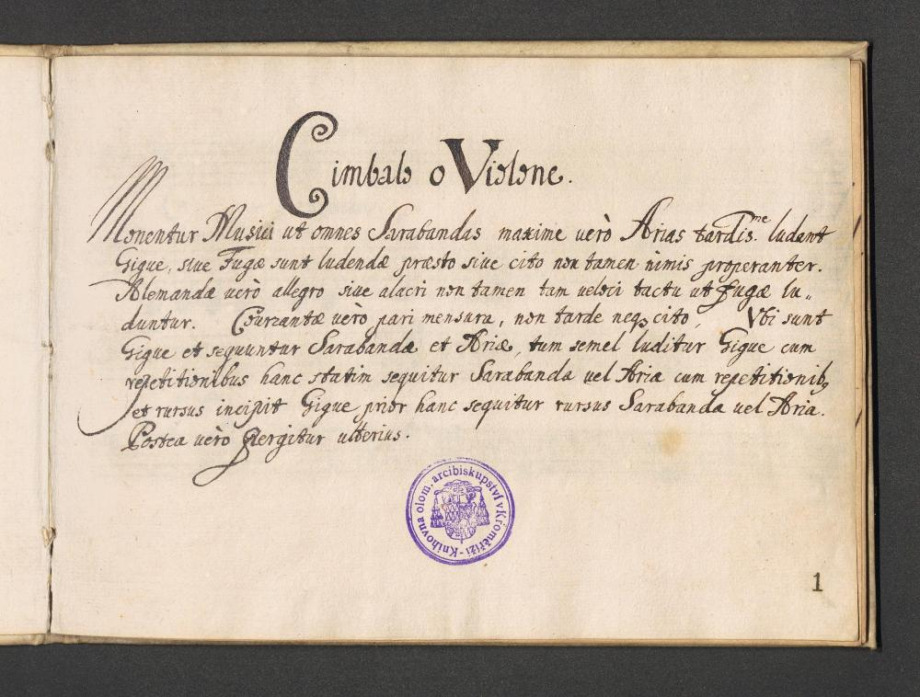 Cimbalo o Violone.
Monentur Musici ut omnes Sarabandas maxime verò Arias tardis.me ludant
Gigue, sive Fugæ sunt ludendæ præsto sive cito non tamen nimis properanter.
Alemandæ verò allegro sive alacri non tamen tam veloci tactu ut Fugæ lu„
duntur. Courantæ verò pari mensura, non tarde neqꝫ cito, Vbi sunt
Gigue et sequuntur Sarabandæ et Ariæ, tum semel luditur Gigue cum
repetitionibus hanc statim sequitur Sarabanda vel Aria cum repetitionibꝫ
et rursus incipit Gigue prior hanc sequitur rursus Sarabanda vel Aria.
Postea verò pergitur ulterius.
Knihovna olom. arcibiskupství v Kroměříži
1